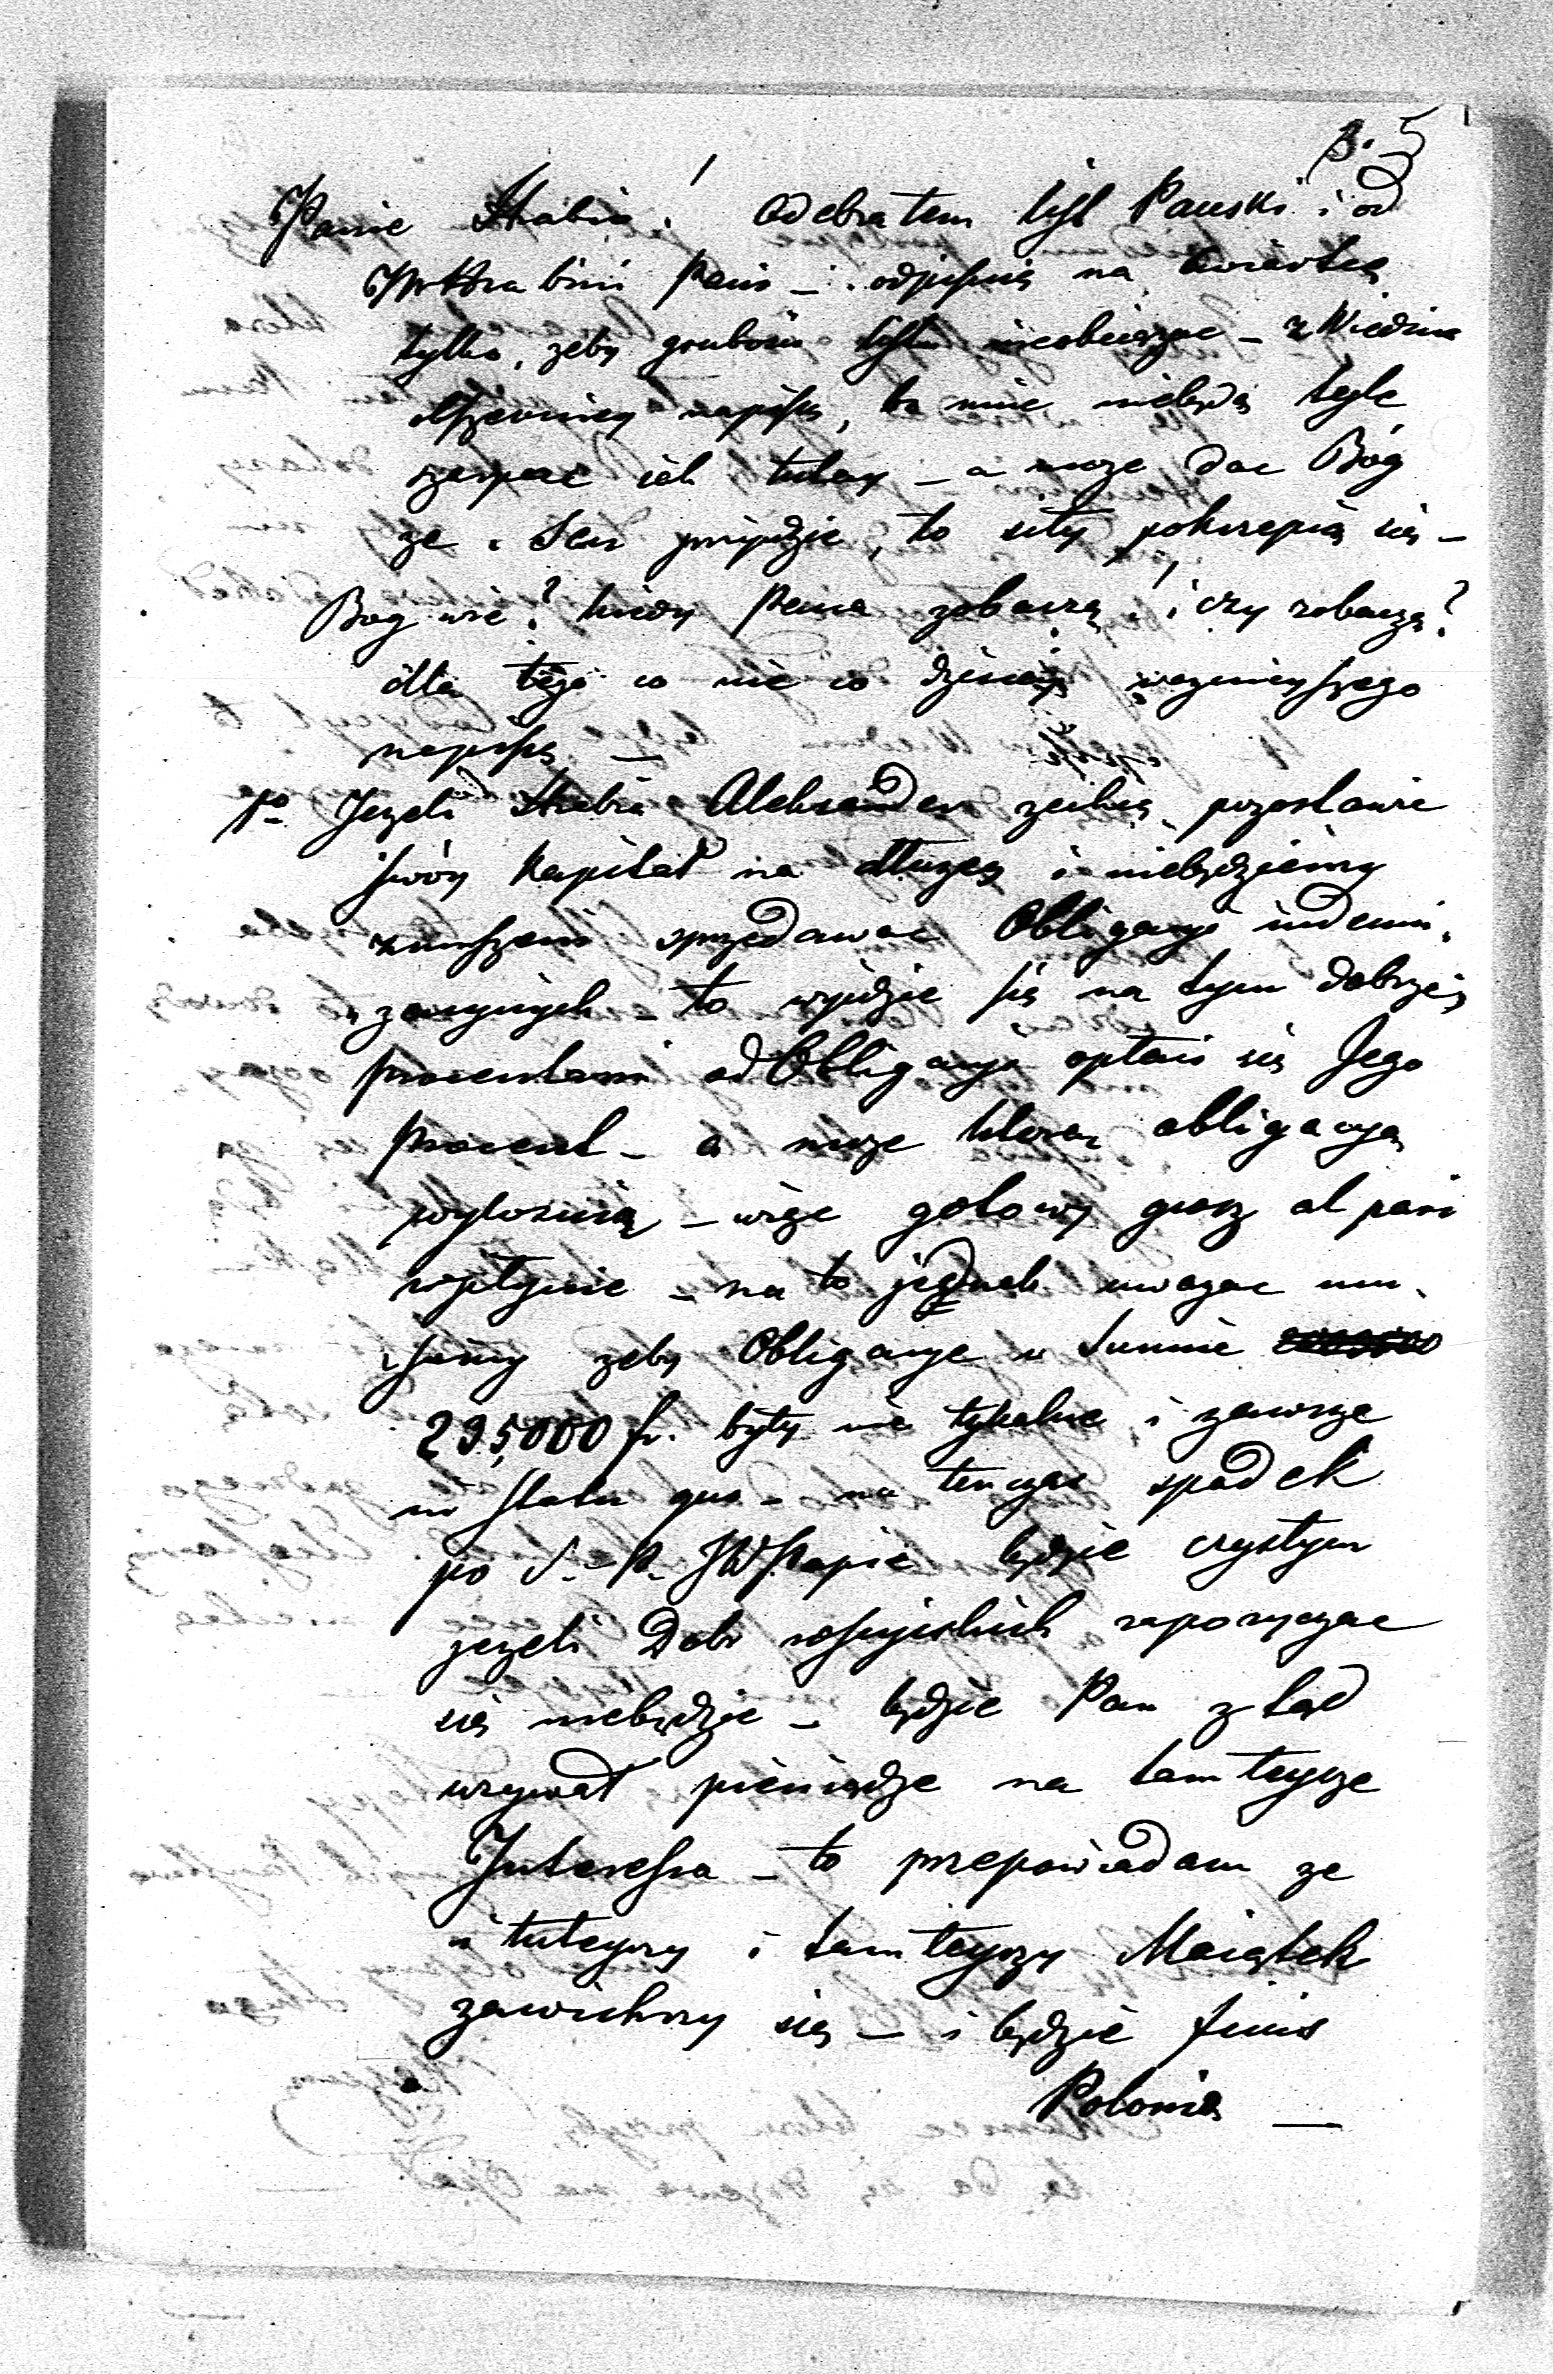 p. 5
Panie Hrabio! Odebrałem list Pański i od
JW Hrabini Pani – odpisuię na ćwiartce
tylko, żeby grubości listu nieobciążac – z Wiednia
obszerniey napiszę, bo mnie niebędą tyle
szarpać jak tutay – a może dac Bóg
że i Sen przyjdzie, to siły pokrzepią się –
Bog wie? kiedy Pana zobaczę! i czy zobaczę?
dla tego co nie co dzisiay ważnieyszego
napiszę –
1º Jeżeli Hrabia Aleksander zechce pozostawic
swóy Kapitał na dłużey i niebędziemy
zmuszeni sprzedawac Obligacyi indemni
zacyinych – to wyidzie się na tym dobrze
procentami od Obligacyi opłaci się Jego
procent – a może ktora obligacya
wylosuią – więc gotowy grosz al pari
wpłynie – na to jednak uważac mu
simy żeby Obligacye w Summie
295,000 fr. były nie tykalne i zawsze
in statu quo – na tenczas spadek
po S. P. JW Papie będzie czystym
jeżeli Dobr rossyiskich zapożyczac
się niebędzie – będzie Pan z tąd
wzywał pieniądze na tamteysze
Interessa – to przepowiadam że
i tuteyszy i tamteyszy Maiątek
zawichrzy się – i będzie finis
Polonia –